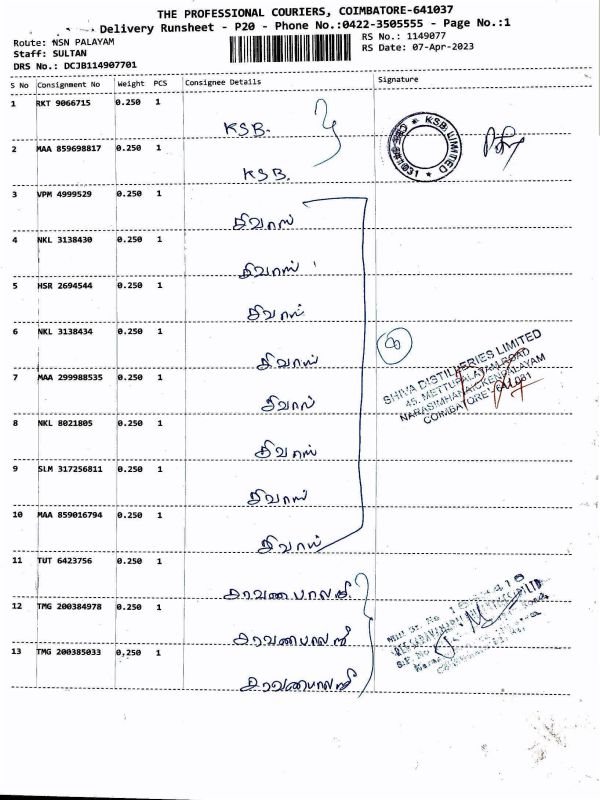 THE PROFESSIONAL COURIERS, COIMBATORE-641037
Delivery Runsheet - P20 - Phone No.:0422-3505555 - Page No.:1
Route: NSN PALAYAM
RS No.: 1149077
Staff: SULTAN
RS Date: 07-Apr-2023
DRS No.: DCJB114907701
S No Consignment No Weight PCS Consignee Details Signature
1 RKT 9066715 0.250 1
KSB.
KSB LIMITED
2 MAA 859698817 0.250 1
KSB.
3 VPM 4999529 0.250 1
சிவாஸ்
4 NKL 3138430 0.250 1
சிவாஸ்
5 HSR 2694544 0.250 1
சிவாஸ்
6 NKL 3138434 0.250 1
சிவாஸ்
8
SHIVA DISTILLERIES LIMITED
45, METTUPALAYAM ROAD
NARASIMHANAICKENPALAYAM
COIMBATORE - 641031
7 MAA 299988535 0.250 1
சிவாஸ்
8 NKL 8021805 0.250 1
சிவாஸ்
9 SLM 317256811 0.250 1
சிவாஸ்
10 MAA 859016794 0.250 1
சிவாஸ்
11 TUT 6423756 0.250 1
சரவணபாலாஜி
12 TMG 200384978 0.250 1
சரவணபாலாஜி
13 TMG 200385033 0,250 1
சரவணபாலாஜி